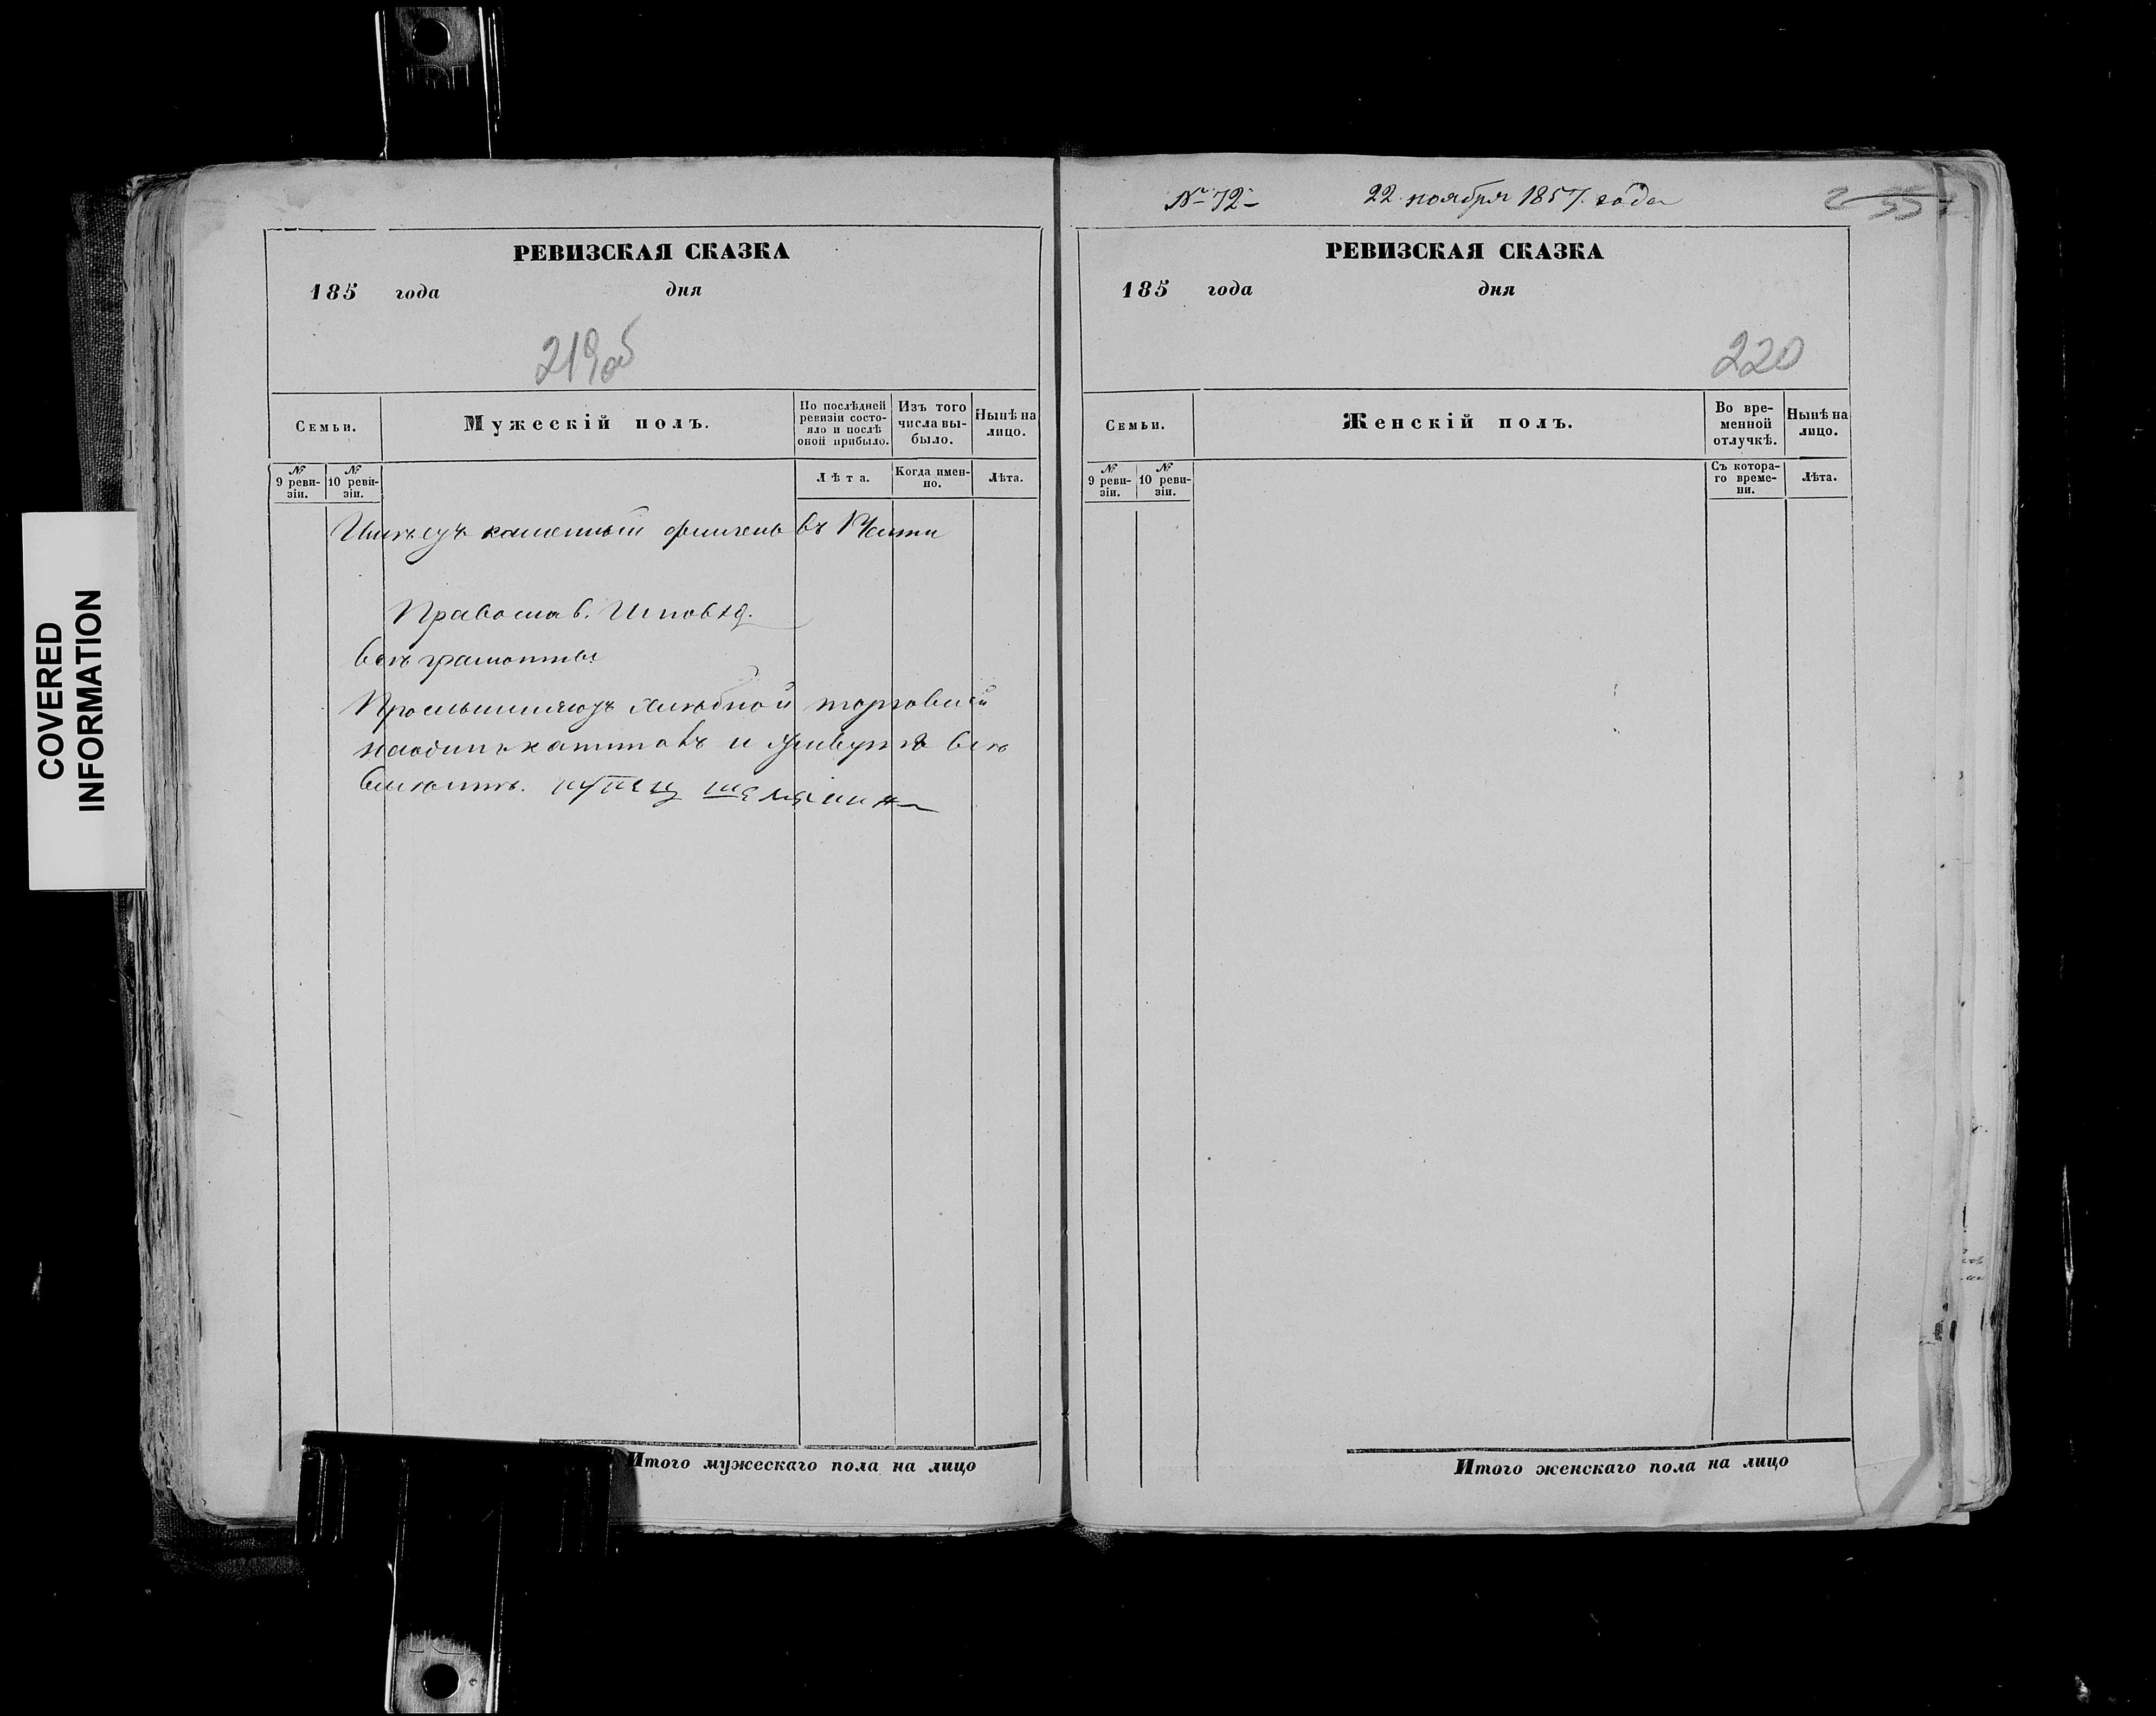 COVERED
INFORMATION
РЕВИЗСКАЯ СКАЗКА
185 года дня
219об
Семьи.
Мужескій полъ.
По послѣдней ревизіи состояло и послѣ оной прибыло.
Изъ того числа выбыло.
Нынѣ на лицо.
№ 9 ревизіи.
№ 10 ревизіи.
Лѣта.
Когда именно.
Лѣта.
Имѣетъ каменный въ
Православ. Исповѣд.
всѣ грамотны
хлѣбной торговлей
и всѣ
вмѣстѣ. купец
Итого мужескаго пола на лицо
№ 72 22 ноября 1857 года
55
РЕВИЗСКАЯ СКАЗКА
185 года дня
220
Семьи.
Женскій полъ.
Во временной отлучкѣ.
Нынѣ на лицо.
№ 9 ревизіи.
№ 10 ревизіи.
Съ котораго времени.
Лѣта.
Итого женскаго пола на лицо